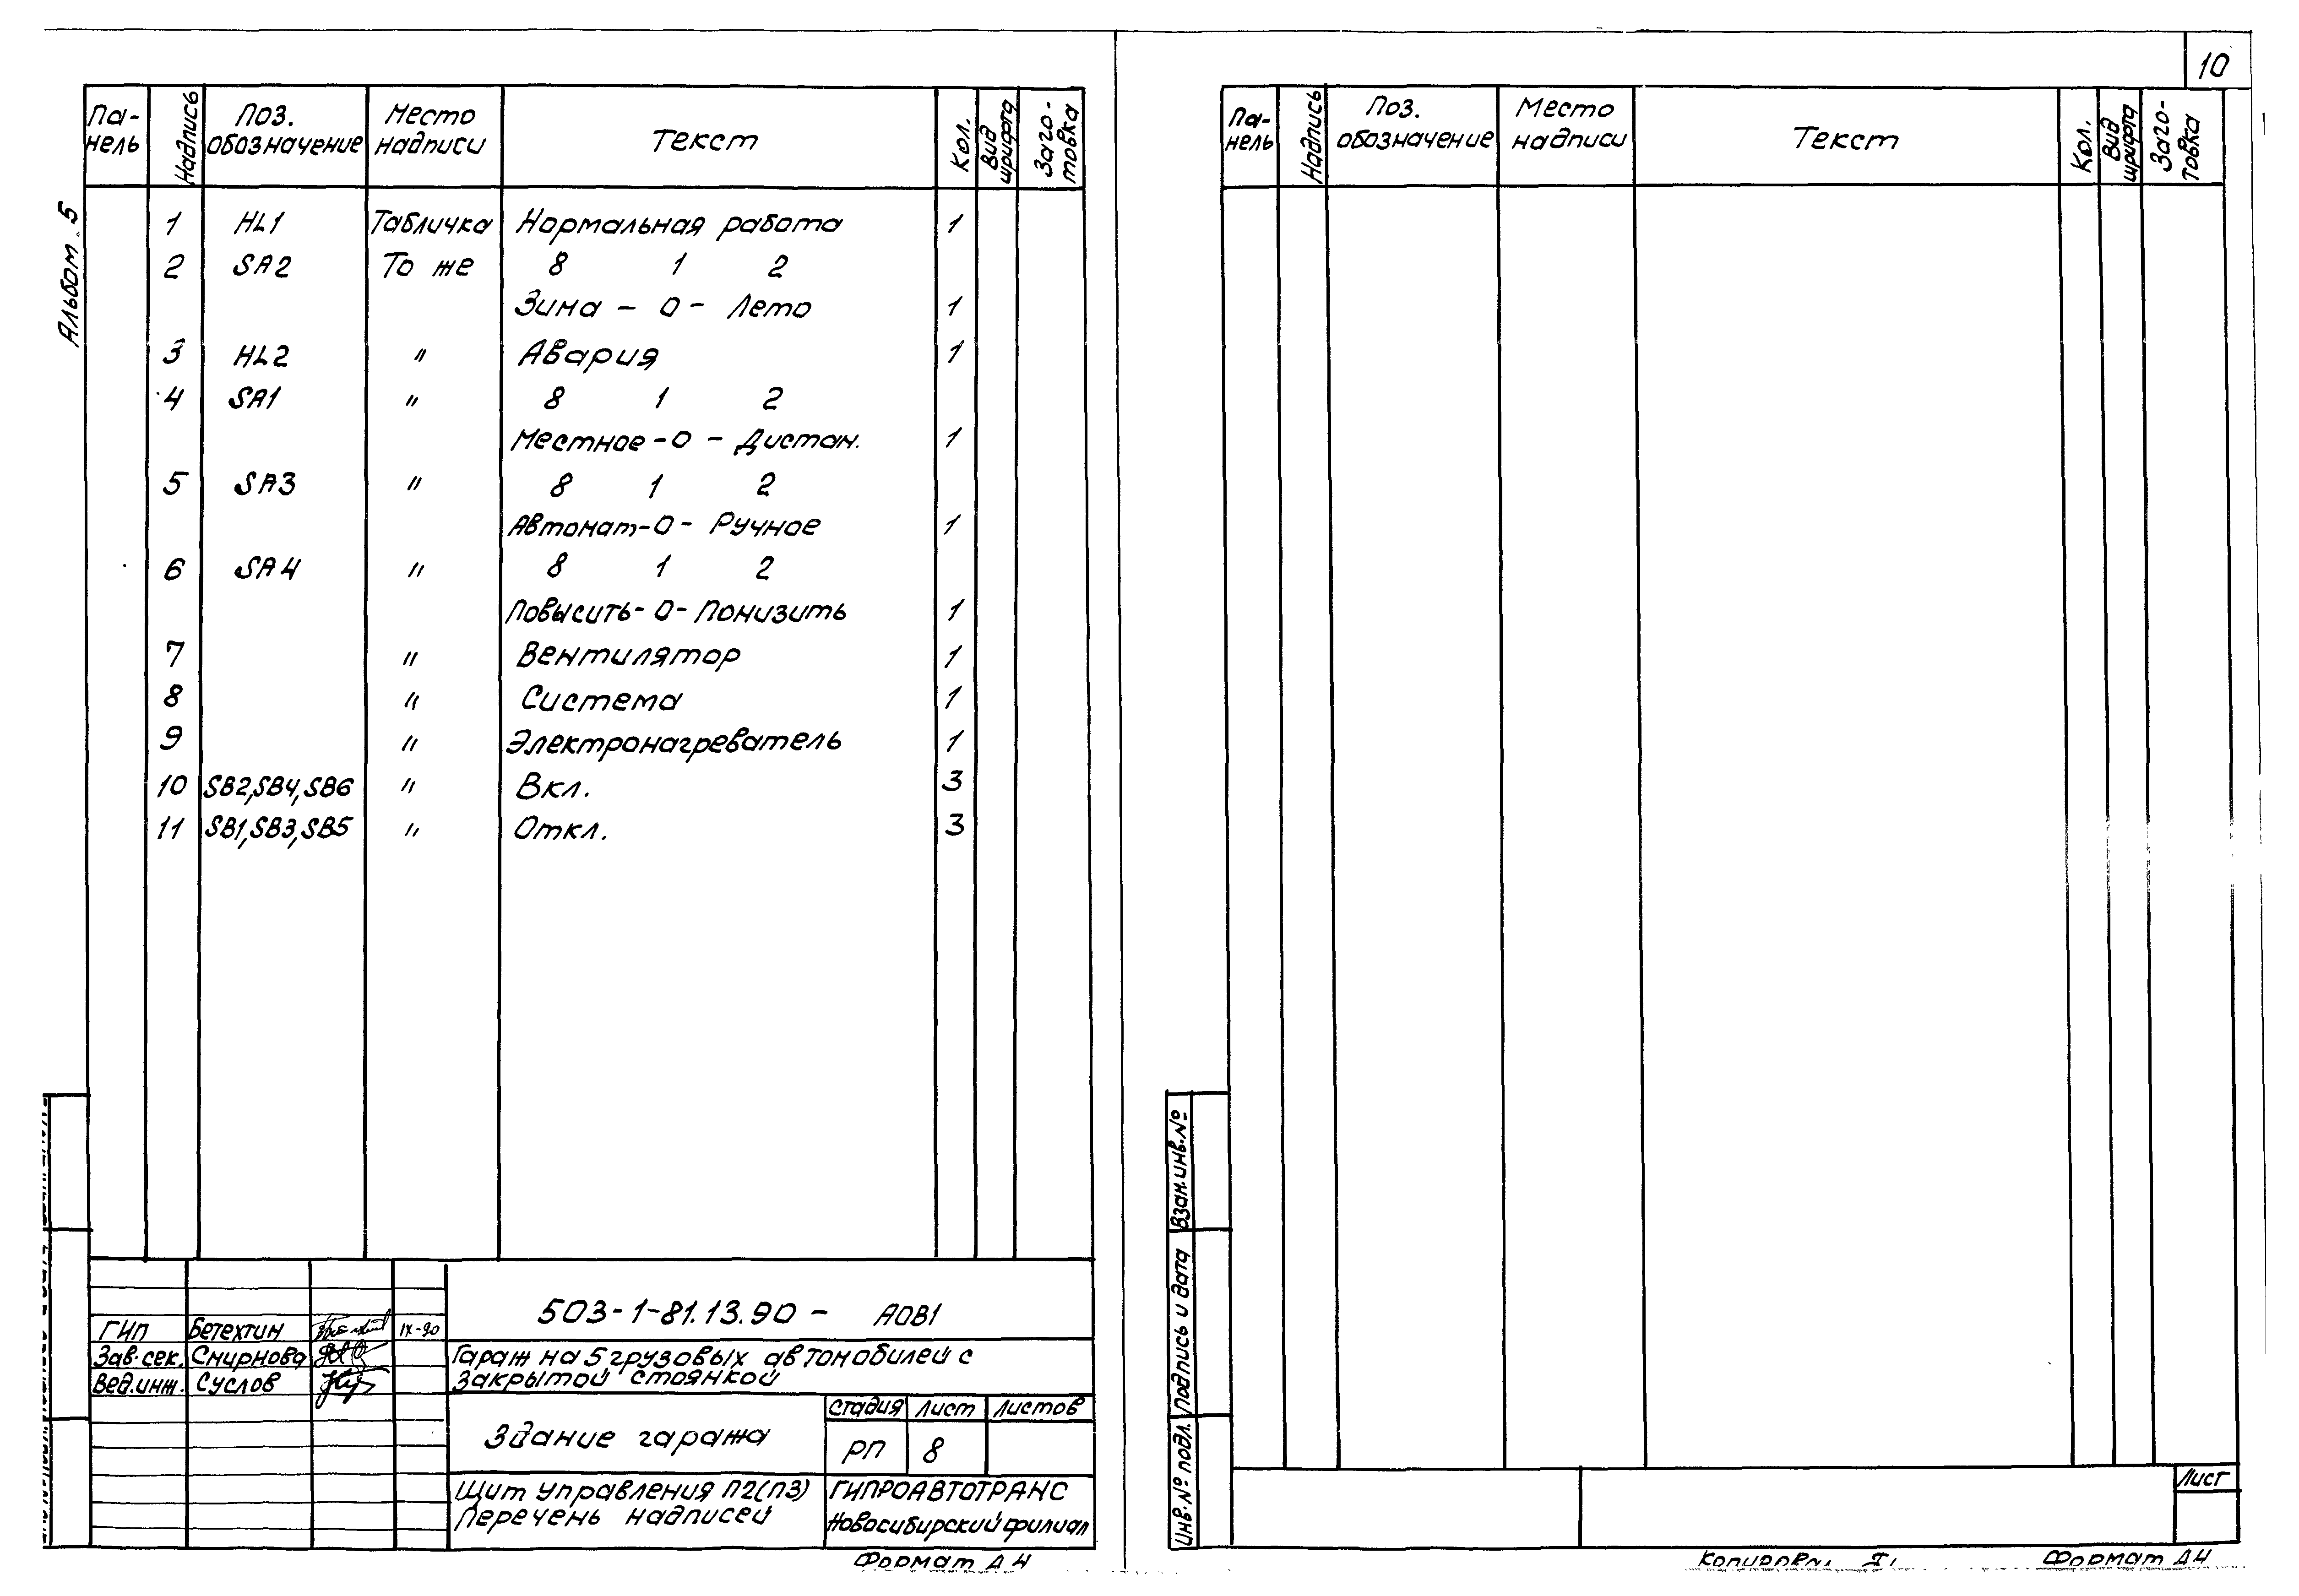 10
Альбом 5
Па-нель Надпись Поз. обозначение Место надписи Текст Кол. Вид шрифта Заго-товка
1 HL1 Табличка Нормальная работа 1
2 SA2 То же 8 1 2
Зима - 0 - Лето 1
3 HL2 " Авария 1
4 SA1 " 8 1 2
Местное - 0 - Дистан. 1
5 SA3 " 8 1 2
Автомат - 0 - Ручное 1
6 SA4 " 8 1 2
Повысить - 0 - Понизить 1
7 " Вентилятор 1
8 " Система 1
9 " Электронагреватель 1
10 SB2, SB4, SB6 " Вкл. 3
11 SB1, SB3, SB5 " Откл. 3
503-1-81.13.90 - АОВ1
ГИП Бетехтин IX-90
Зав.сек. Смирнова
Вед.инж. Суслов
Гараж на 5 грузовых автомобилей с
закрытой стоянкой
Здание гаража
Стадия Лист Листов
РП 8
Щит управления П2(П3)
Перечень надписей
ГИПРОАВТОТРАНС
Новосибирский филиал
Формат А4
Па-нель Надпись Поз. обозначение Место надписи Текст Кол. Вид шрифта Заго-товка
Взам.инв.№
Подпись и дата
Инв.№ подл.
Лист
Формат А4